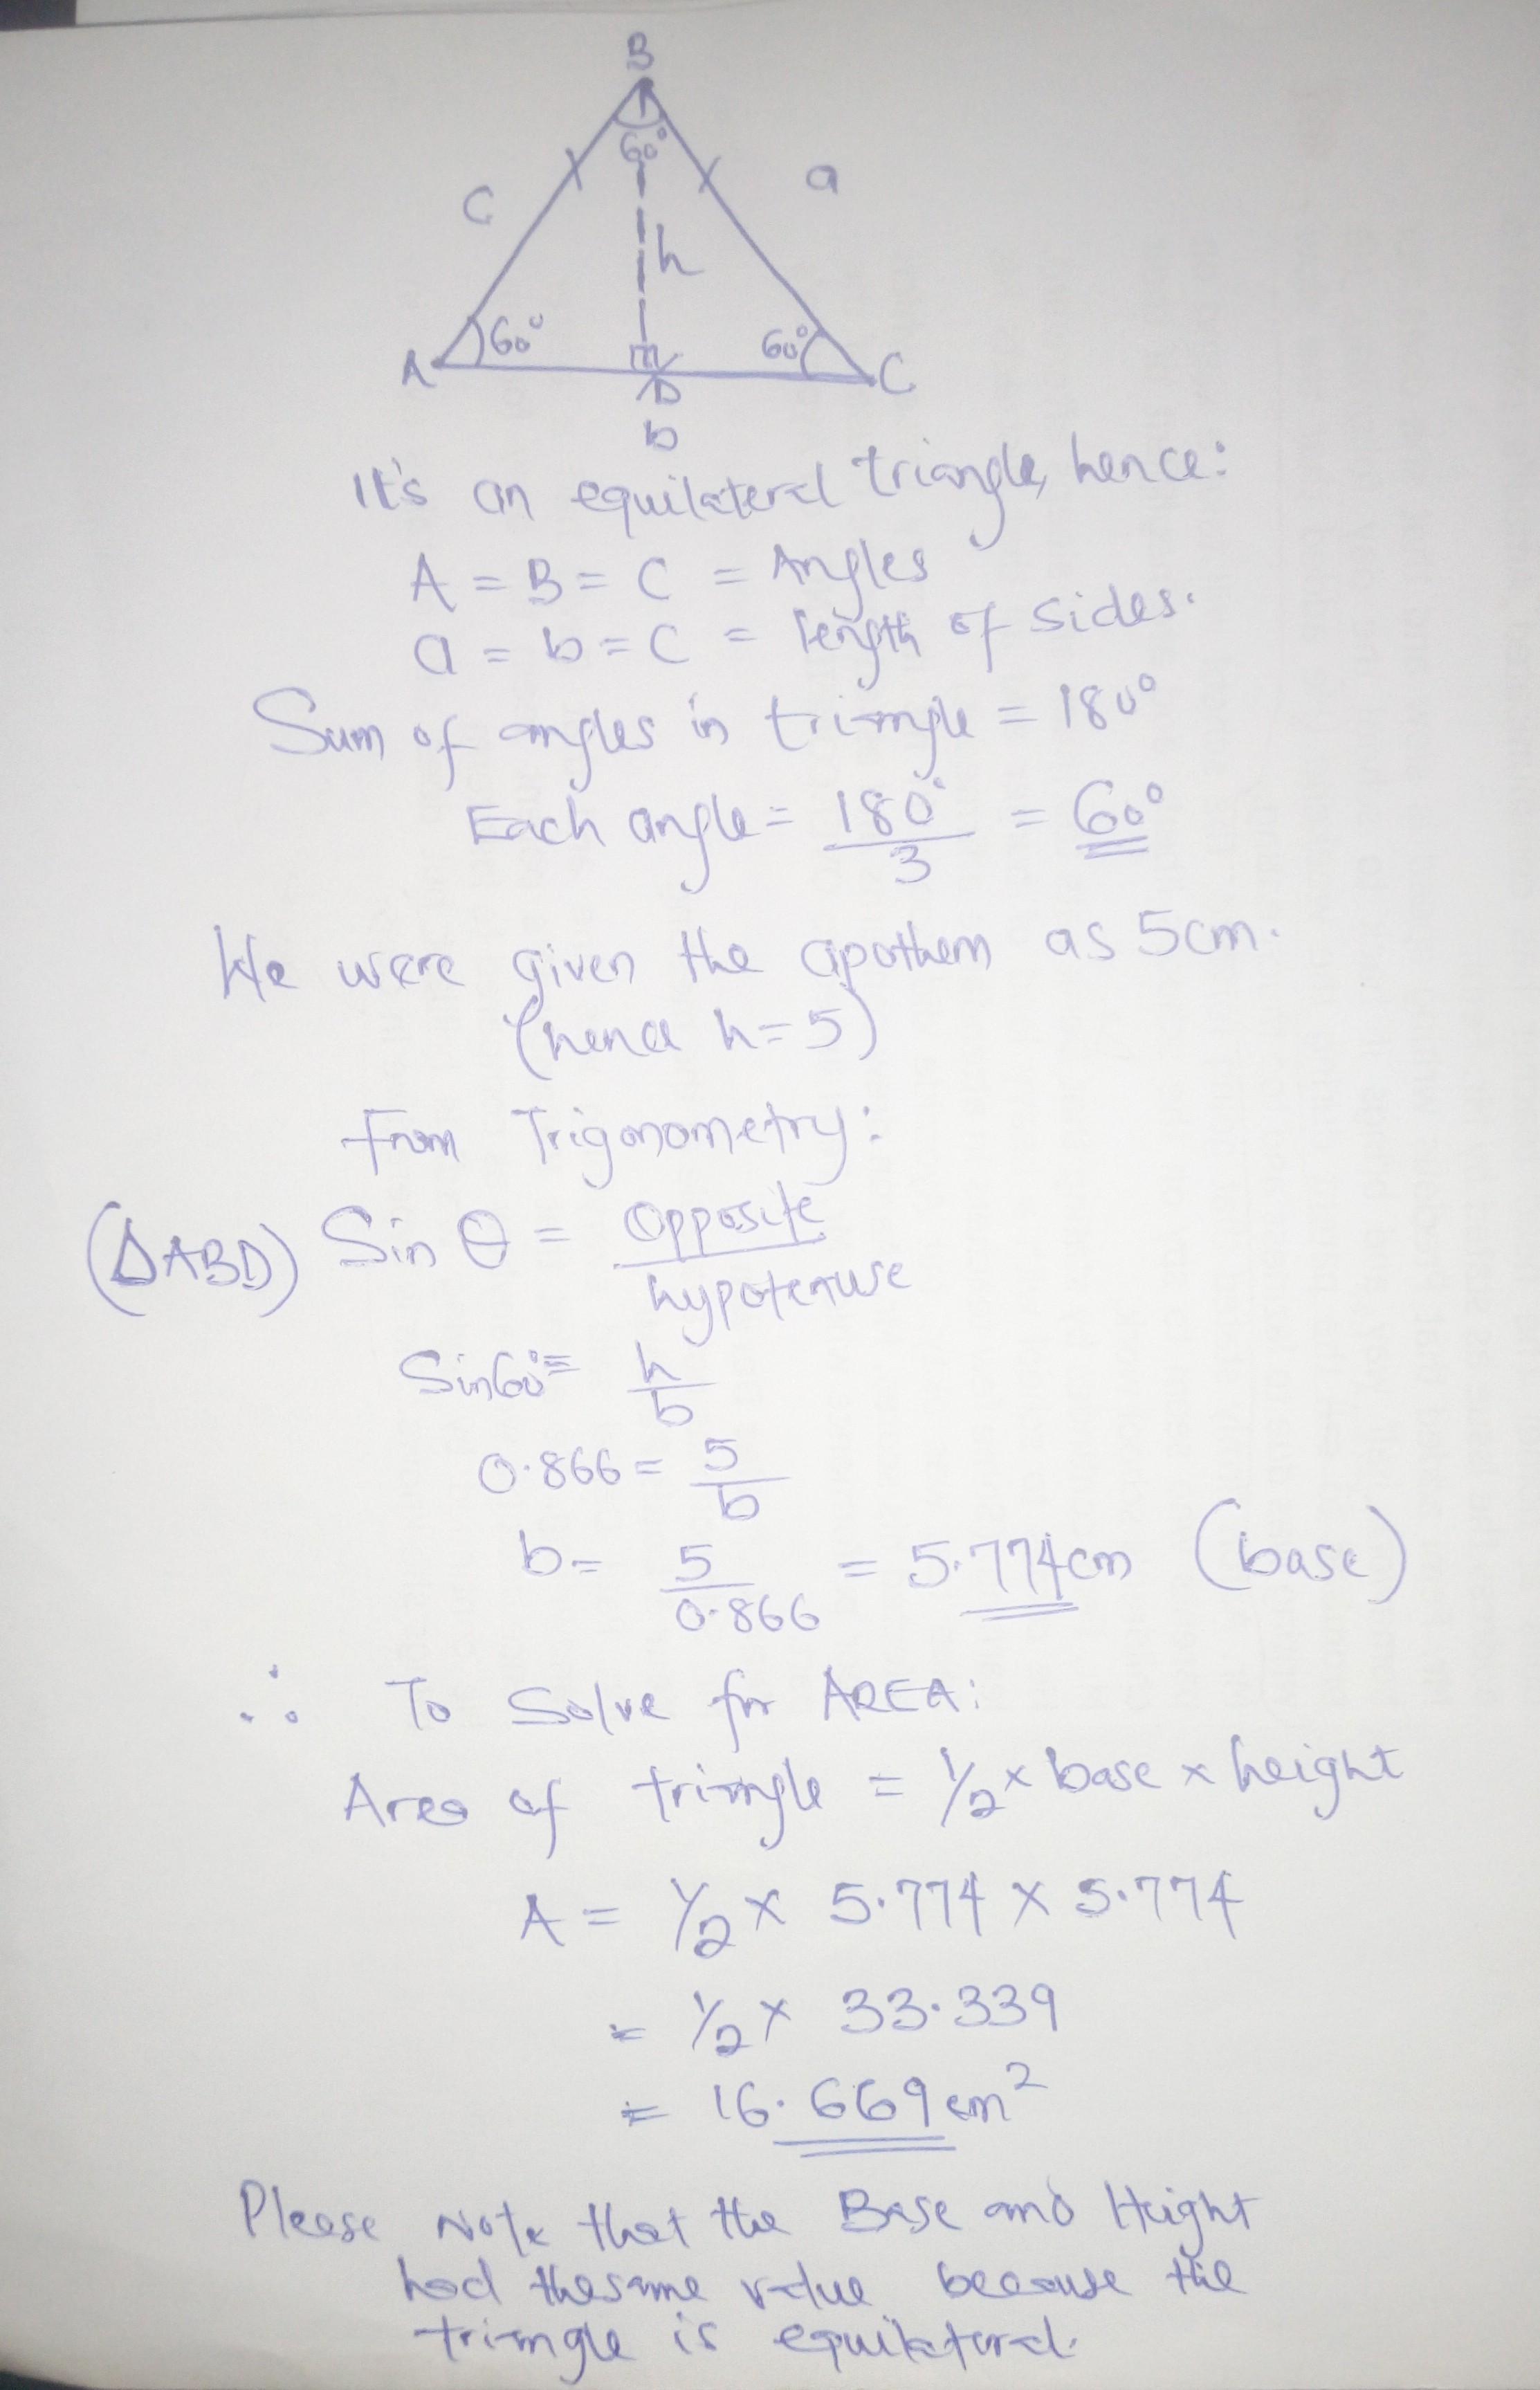 B
60°
C
a
h
A
60°
60°
C
D
b
It's an equilateral triangle, hence:
A = B = C = Angles
a = b = C = length of sides.
Sum of angles in triangle = 180°
Each angle = 180° / 3 = 60°
We were given the apothem as 5cm.
(hence h=5)
From Trigonometry:
(ΔABD) Sin θ = Opposite / hypotenuse
Sin60° = h / b
0.866 = 5 / b
b = 5 / 0.866 = 5.774cm (base)
∴ To Solve for AREA:
Area of triangle = 1/2 × base × height
A = 1/2 × 5.774 × 5.774
= 1/2 × 33.339
= 16.669cm²
Please Note that the Base and Height
had thesame value because the
triangle is equilateral.